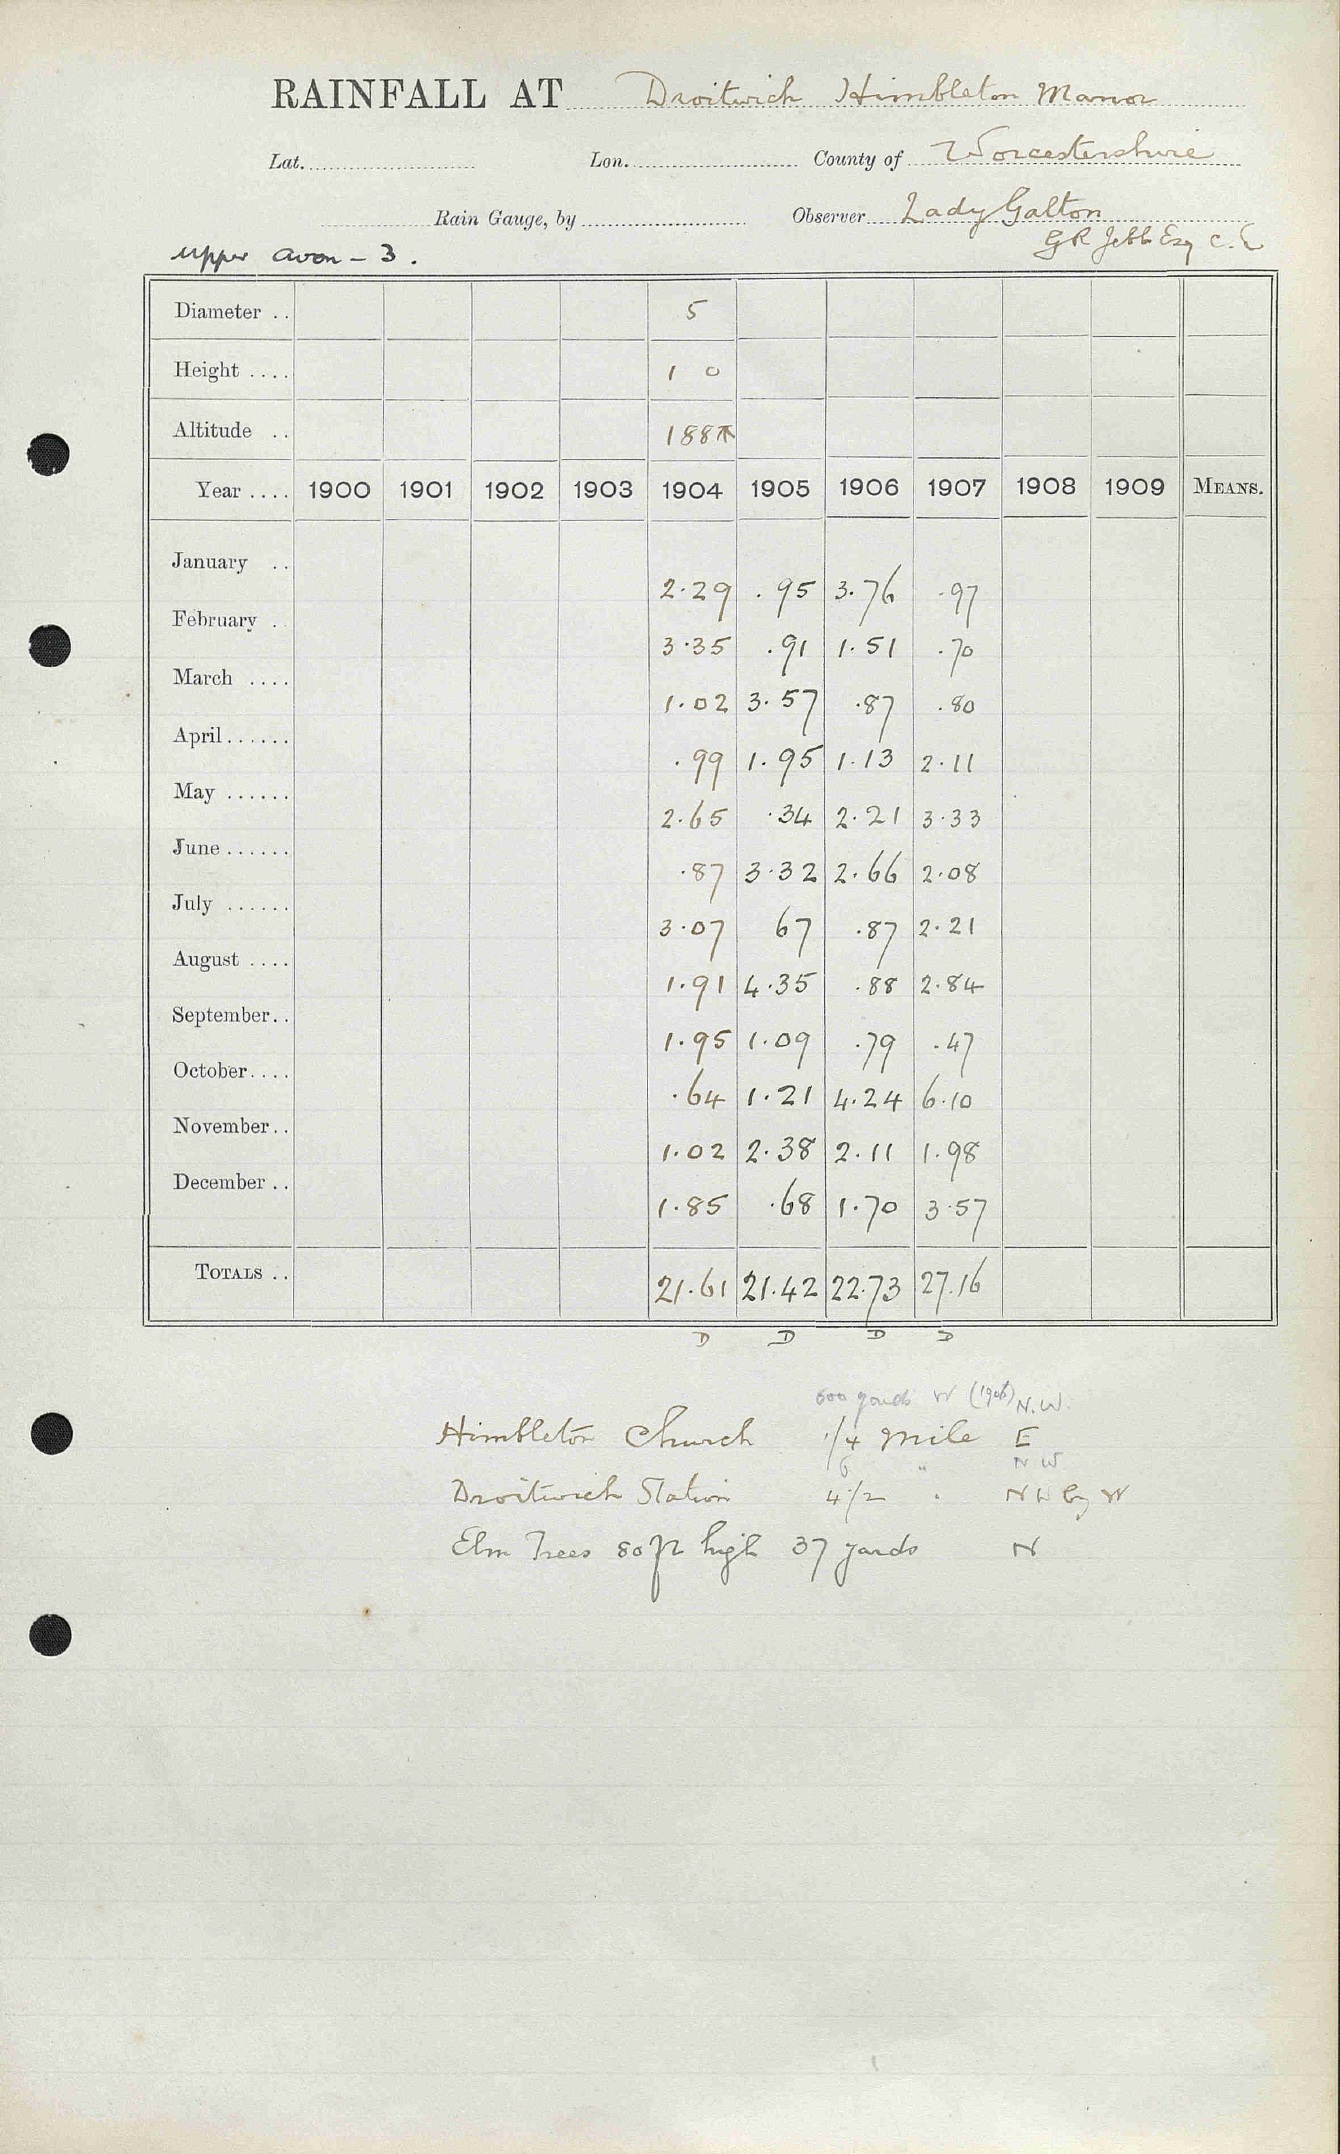 RAINFALL AT Droitwich Himbleton Manor
Lat. Lon. County of Worcestershire
Rain Gauge, by Observer Lady Galton
G R Jebb Esq C.E
Upper Avon - 3.
Diameter .. 5
Height .... 1 0
Altitude .. 188
Year .... 1900 1901 1902 1903 1904 1905 1906 1907 1908 1909 MEANS.
January .. 2.29 .95 3.76 .97
February . 3.35 .91 1.51 .70
March .... 1.02 3.57 .87 .80
April...... .99 1.95 1.13 2.11
May ...... 2.65 .34 2.21 3.33
June ...... .87 3.32 2.66 2.08
July ...... 3.07 67 .87 2.21
August .... 1.91 4.35 .88 2.84
September.. 1.95 1.09 .79 .47
October.... .64 1.21 4.24 6.10
November.. 1.02 2.38 2.11 1.98
December .. 1.85 .68 1.70 3.57
TOTALS .. 21.61 21.42 22.73 27.16
D D D D
600 yards W (1906) N.W.
Himbleton Church 1/4 Mile E
6 " N W
Droitwich Station 4 1/2 " NW by W
Elm Trees 80 ft high 37 yards N